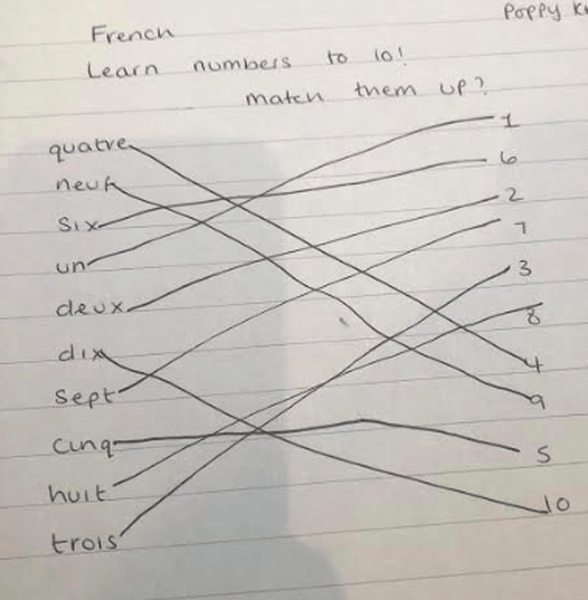 Poppy
French
Learn numbers to 10!
match them up?
quatre 1
neuf 6
six 2
un 7
deux 3
dix 8
sept 4
cinq 9
huit 5
trois 10